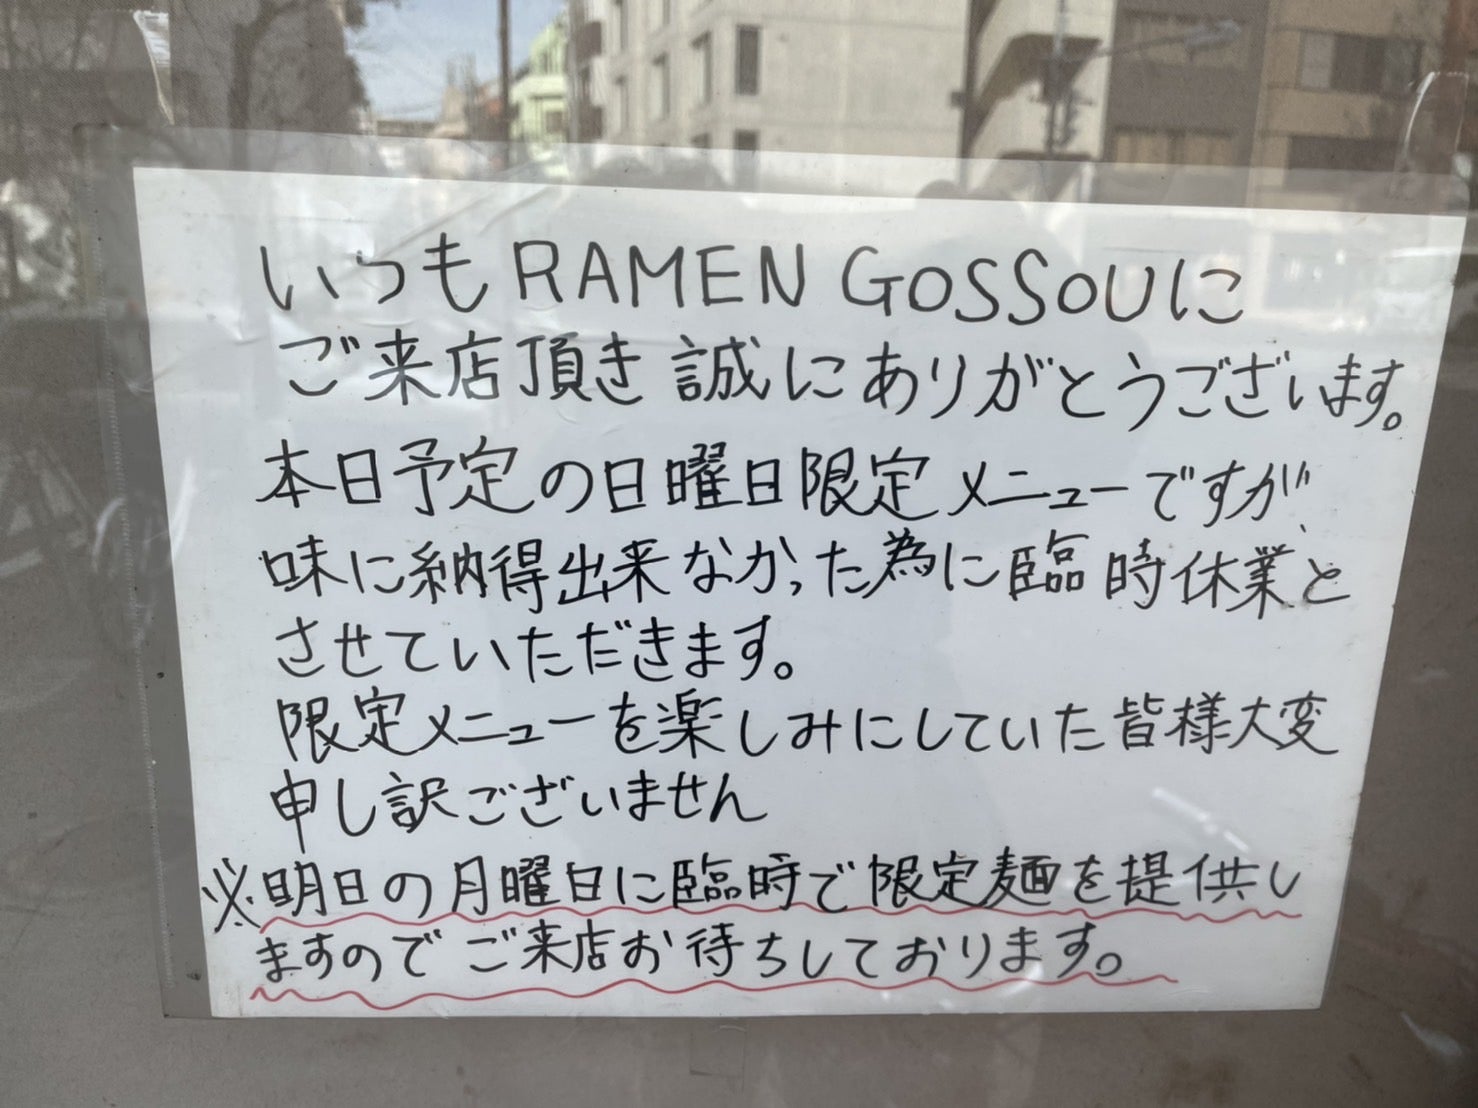 いつもRAMEN GOSSOUに
ご来店頂き誠にありがとうございます。
本日予定の日曜日限定メニューですが、
味に納得出来なかった為に臨時休業と
させていただきます。
限定メニューを楽しみにしていた皆様大変
申し訳ございません
※明日の月曜日に臨時で限定麺を提供し
ますのでご来店お待ちしております。